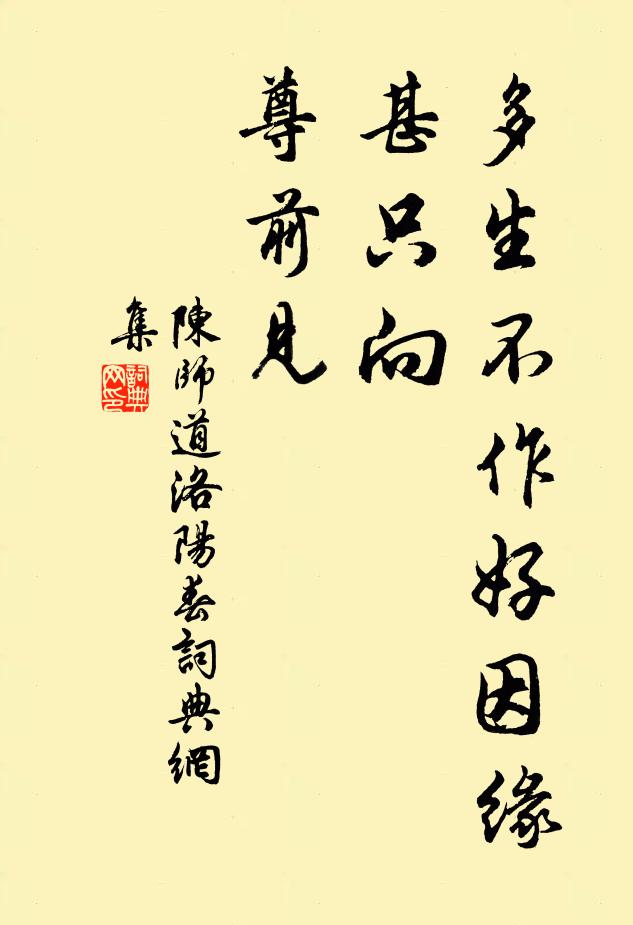 多生不作好因緣
甚只向
尊前見
陳師道洛陽春詞典網
集
詞典
网印